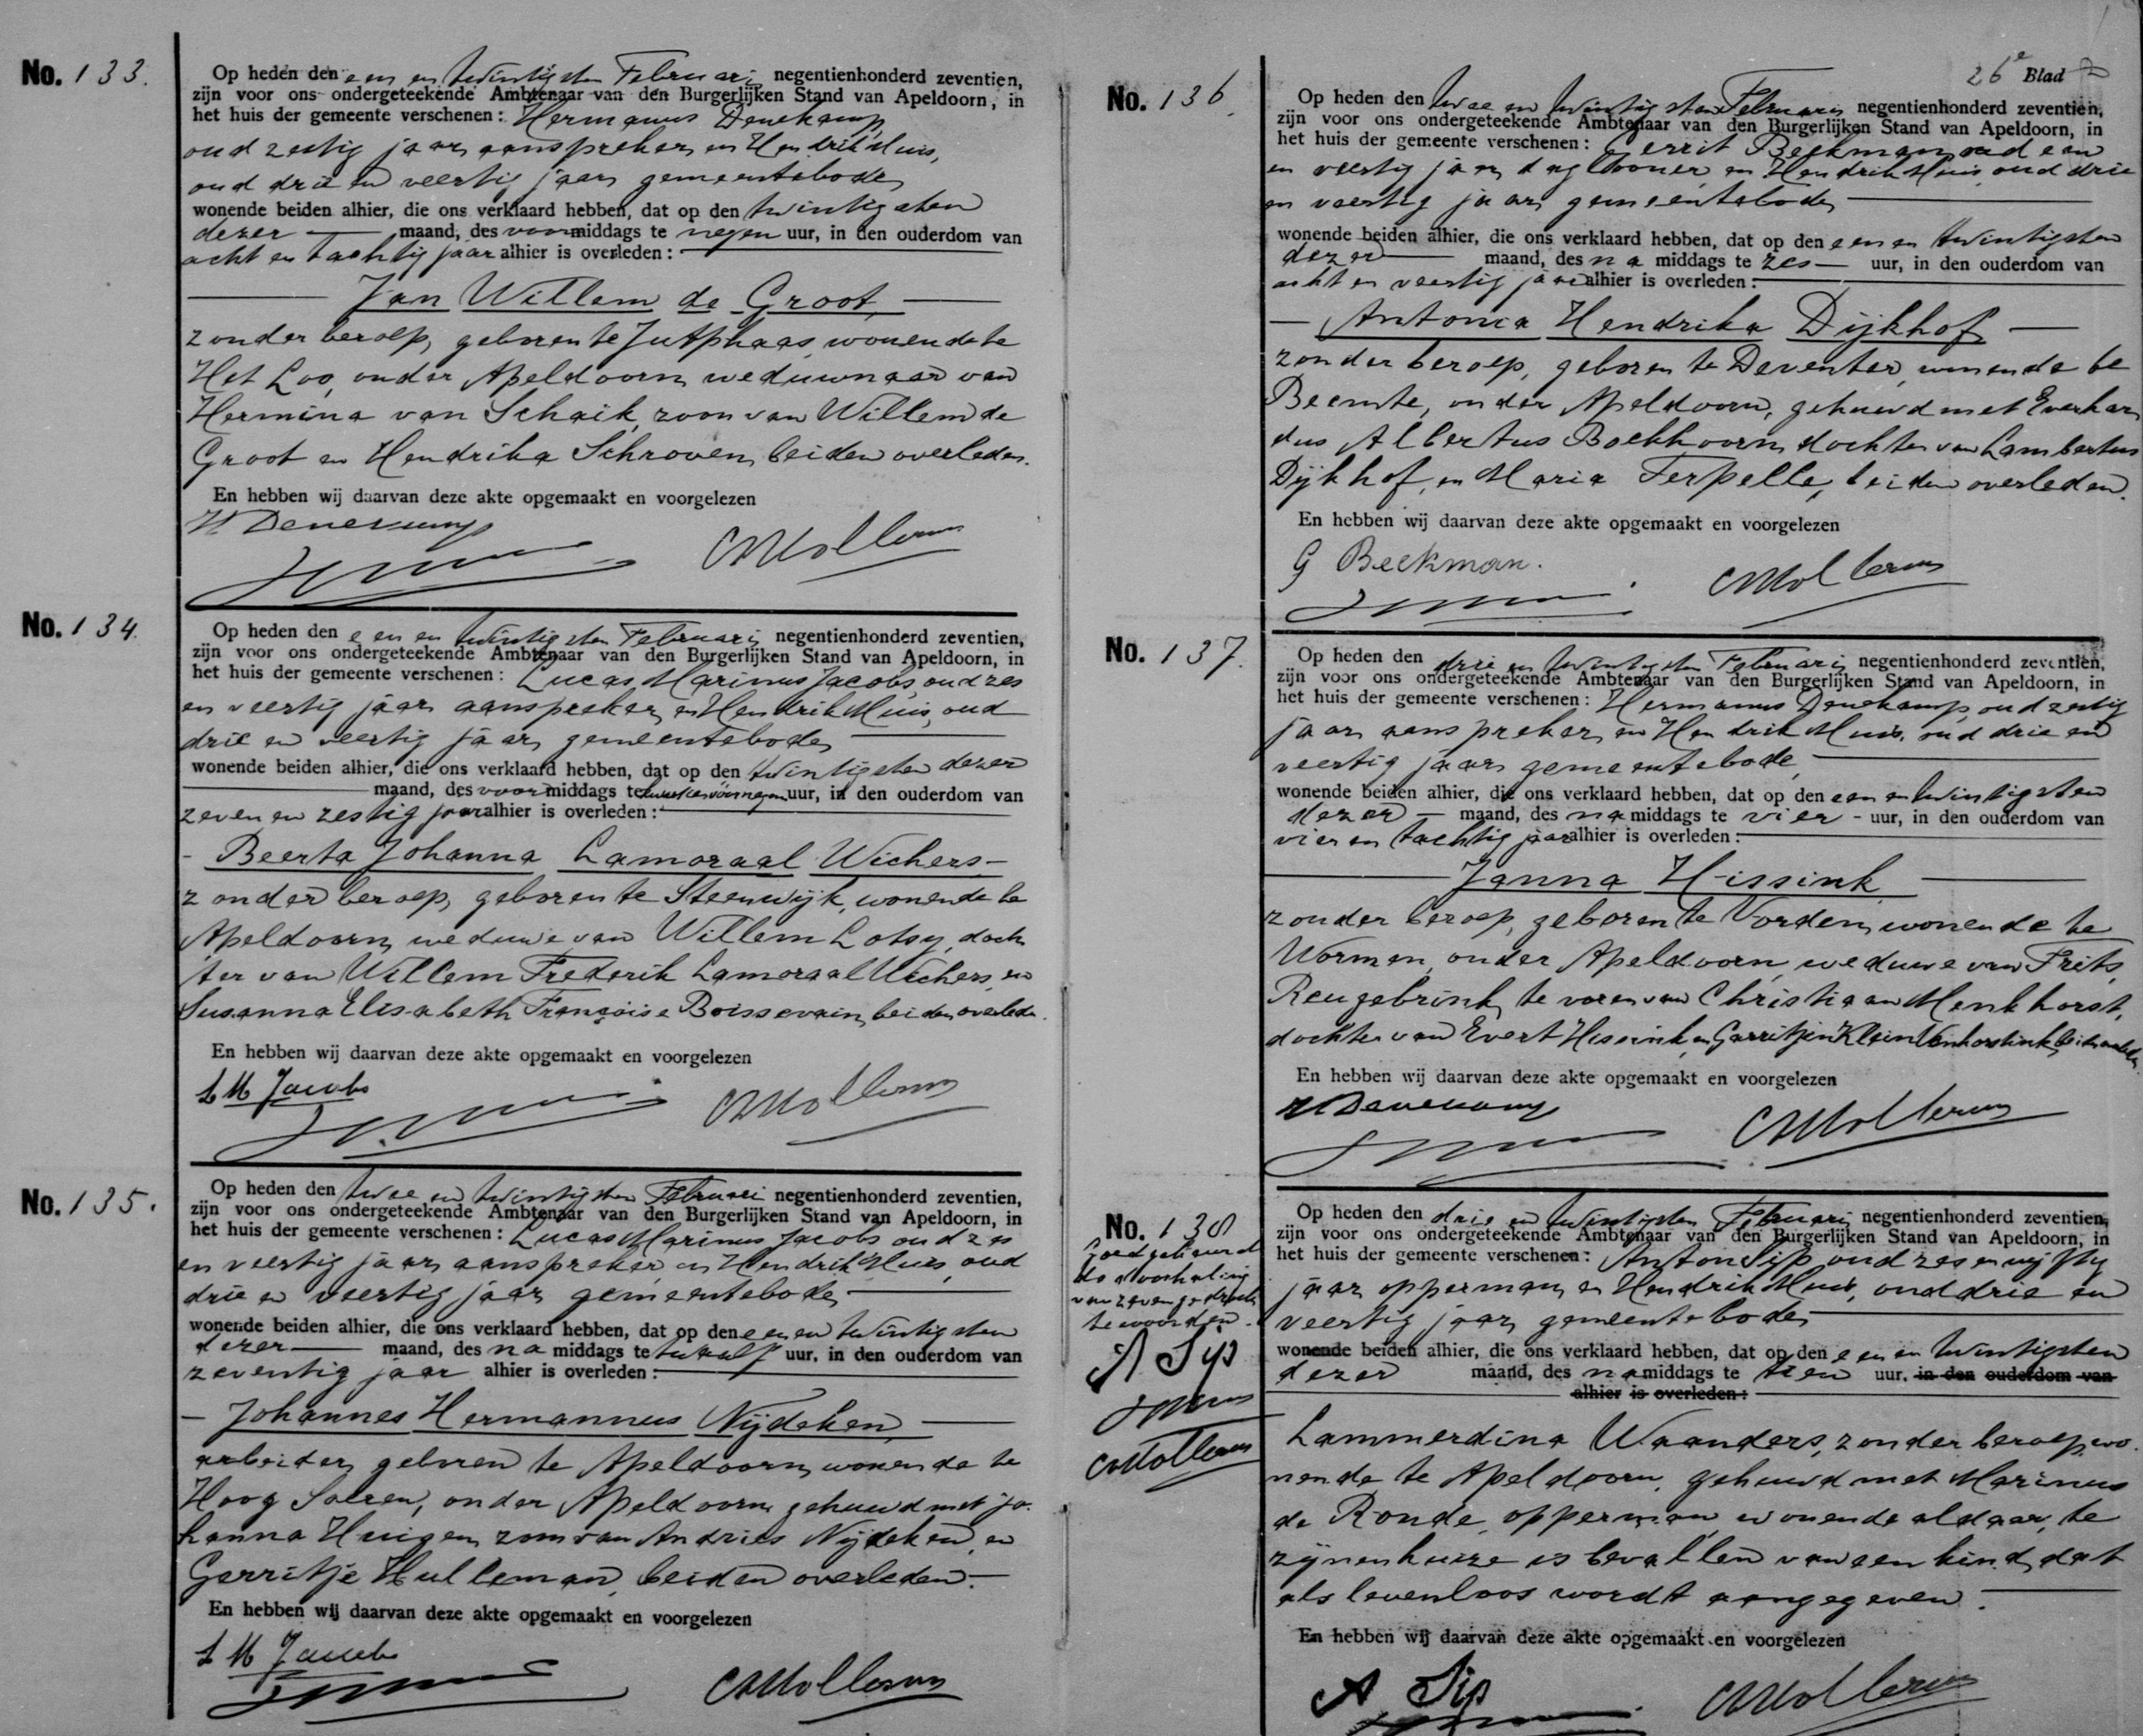 No. 133.
Op heden den een en twintigsten Februari negentienhonderd zeventien,
zijn voor ons ondergeteekende Ambtenaar van den Burgerlijken Stand van Apeldoorn, in
het huis der gemeente verschenen: Hermanus Denekamp,
oud zestig jaar, aanspreker, en Hendrik Muis,
oud drie en veertig jaar, gemeentebode,
wonende beiden alhier, die ons verklaard hebben, dat op den twintigsten
dezer maand, des voormiddags te negen uur, in den ouderdom van
acht en tachtig jaar alhier is overleden:
Jan Willem de Groot,
zonder beroep, geboren te Jutphaas, wonende te
Het Loo, onder Apeldoorn, weduwnaar van
Hermina van Schaik, zoon van Willem de
Groot en Hendrika Schroven, beiden overleden.
En hebben wij daarvan deze akte opgemaakt en voorgelezen
H Denekamp
No. 134.
Op heden den een en twintigsten Februari negentienhonderd zeventien,
zijn voor ons ondergeteekende Ambtenaar van den Burgerlijken Stand van Apeldoorn, in
het huis der gemeente verschenen: Lucas Marinus Jacobs, oud zes
en veertig jaar, aanspreker, en Hendrik Muis, oud
drie en veertig jaar, gemeentebode,
wonende beiden alhier, die ons verklaard hebben, dat op den twintigsten dezer
maand, des voormiddags te kwart voor negen uur, in den ouderdom van
zeven en zestig jaar alhier is overleden:
- Beerta Johanna Lamoraal Wichers -
zonder beroep, geboren te Steenwijk, wonende te
Apeldoorn, weduwe van Willem Lotsy, doch
ter van Willem Frederik Lamoraal Wichers, en
Susanna Elisabeth Françoise Boissevain, beiden overleden.
En hebben wij daarvan deze akte opgemaakt en voorgelezen
L M Jacobs
No. 135.
Op heden den twee en twintigsten Februari negentienhonderd zeventien,
zijn voor ons ondergeteekende Ambtenaar van den Burgerlijken Stand van Apeldoorn, in
het huis der gemeente verschenen: Lucas Marinus Jacobs oud zes
en veertig jaar, aanspreker en Hendrik Muis, oud
drie en veertig jaar, gemeentebode,
wonende beiden alhier, die ons verklaard hebben, dat op den een en twintigsten
dezer maand, des na middags te twaalf uur, in den ouderdom van
zeventig jaar alhier is overleden:
- Johannes Hermannus Nijdeken, -
arbeider, geboren te Apeldoorn, wonende te
Hoog Soeren, onder Apeldoorn, gehuwd met Jo-
hanna Huigen, zoon van Andries Nijdeken, en
Gerritje Hulleman, beiden overleden.-
En hebben wij daarvan deze akte opgemaakt en voorgelezen
L M Jacobs
26e Blad
No. 136.
Op heden den twee en twintigsten Februari negentienhonderd zeventien,
zijn voor ons ondergeteekende Ambtenaar van den Burgerlijken Stand van Apeldoorn, in
het huis der gemeente verschenen: Gerrit Beekman, oud een
en veertig jaar, daglooner, en Hendrik Muis, oud drie
en veertig jaar, gemeentebode,
wonende beiden alhier, die ons verklaard hebben, dat op den een en twintigsten
dezer maand, des na middags te zes uur, in den ouderdom van
acht en veertig jaar alhier is overleden:
- Antonia Hendrika Dijkhof -
zonder beroep, geboren te Deventer, wonende te
Beemte, onder Apeldoorn, gehuwd met Everhar
dus Albertus Boekhoorn, dochter van Lambertus
Dijkhof, en Maria Ferpelle, beiden overleden.
En hebben wij daarvan deze akte opgemaakt en voorgelezen
G Beekman.
No. 137.
Op heden den drie en twintigsten Februari negentienhonderd zeventien,
zijn voor ons ondergeteekende Ambtenaar van den Burgerlijken Stand van Apeldoorn, in
het huis der gemeente verschenen: Hermanus Denekamp, oud zestig
jaar, aanspreker, en Hendrik Muis, oud drie en
veertig jaar, gemeentebode,
wonende beiden alhier, die ons verklaard hebben, dat op den een en twintigsten
dezer maand, des namiddags te vier - uur, in den ouderdom van
vier en tachtig jaar alhier is overleden:
Janna Hissink
zonder beroep, geboren te Vorden, wonende te
Wormen, onder Apeldoorn, weduwe van Frits
Reugebrink, te voren van Christiaan Menkhorst,
dochter van Evert Hissink en Garritjen Klein Venhorstink, beiden overleden.
En hebben wij daarvan deze akte opgemaakt en voorgelezen
H Denekamp
No. 138
Goedgekeurd
de doorhaling
van zeven gedrukte
te woorden.
A Sip
Op heden den drie en twintigsten Februari negentienhonderd zeventien,
zijn voor ons ondergeteekende Ambtenaar van den Burgerlijken Stand van Apeldoorn, in
het huis der gemeente verschenen: Anton Sip, oud zes en vijftig
jaar, opperman, en Hendrik Muis, oud drie en
veertig jaar, gemeentebode,
wonende beiden alhier, die ons verklaard hebben, dat op den een en twintigsten
dezer maand, des namiddags te tien uur, in den ouderdom van
alhier is overleden:
Lammerdina Waanders, zonder beroep, wo-
nende te Apeldoorn, gehuwd met Marinus
de Ronde, opperman, wonende aldaar, te
zijnen huize is bevallen van een kind, dat
als levenloos wordt aangegeven.
En hebben wij daarvan deze akte opgemaakt en voorgelezen
A Sip